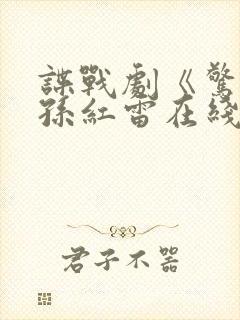 諜戰劇《驚
孫紅雷在綫
君子不器